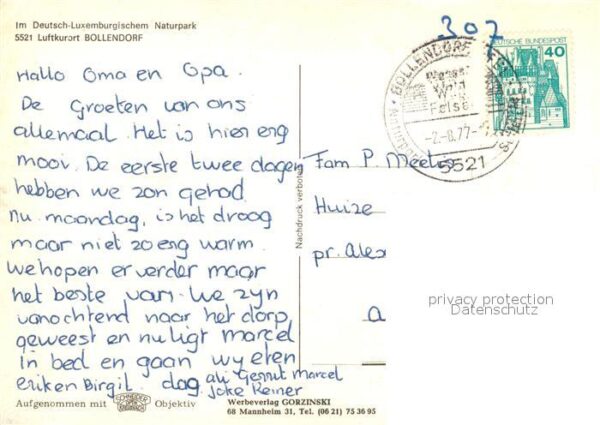 Im Deutsch-Luxemburgischem Naturpark
5521 Luftkurort BOLLENDORF
307
DEUTSCHE BUNDESPOST
40
BOLLENDORF
Wasser
Wald
Felsen
-2.-8.77-
5521
Hallo Oma en Opa.
De Groeten van ons
allemaal. Het is hier erg
mooi. De eerste twee dagen
hebben we zon gehad.
nu maandag, is het droog
maar niet zo erg warm.
we hopen er verder maar
het beste van. We zijn
vanochtend naar het dorp
geweest en nu ligt marcel
in bed en gaan wy eten
dag
Gerrit Marcel
Joke Reiner
Fam P.
Huize
pr. Alex
a
Nachdruck verboten
privacy protection
Datenschutz
Aufgenommen mit
Objektiv
Werbeverlag GORZINSKI
68 Mannheim 31, Tel. (06 21) 75 36 95